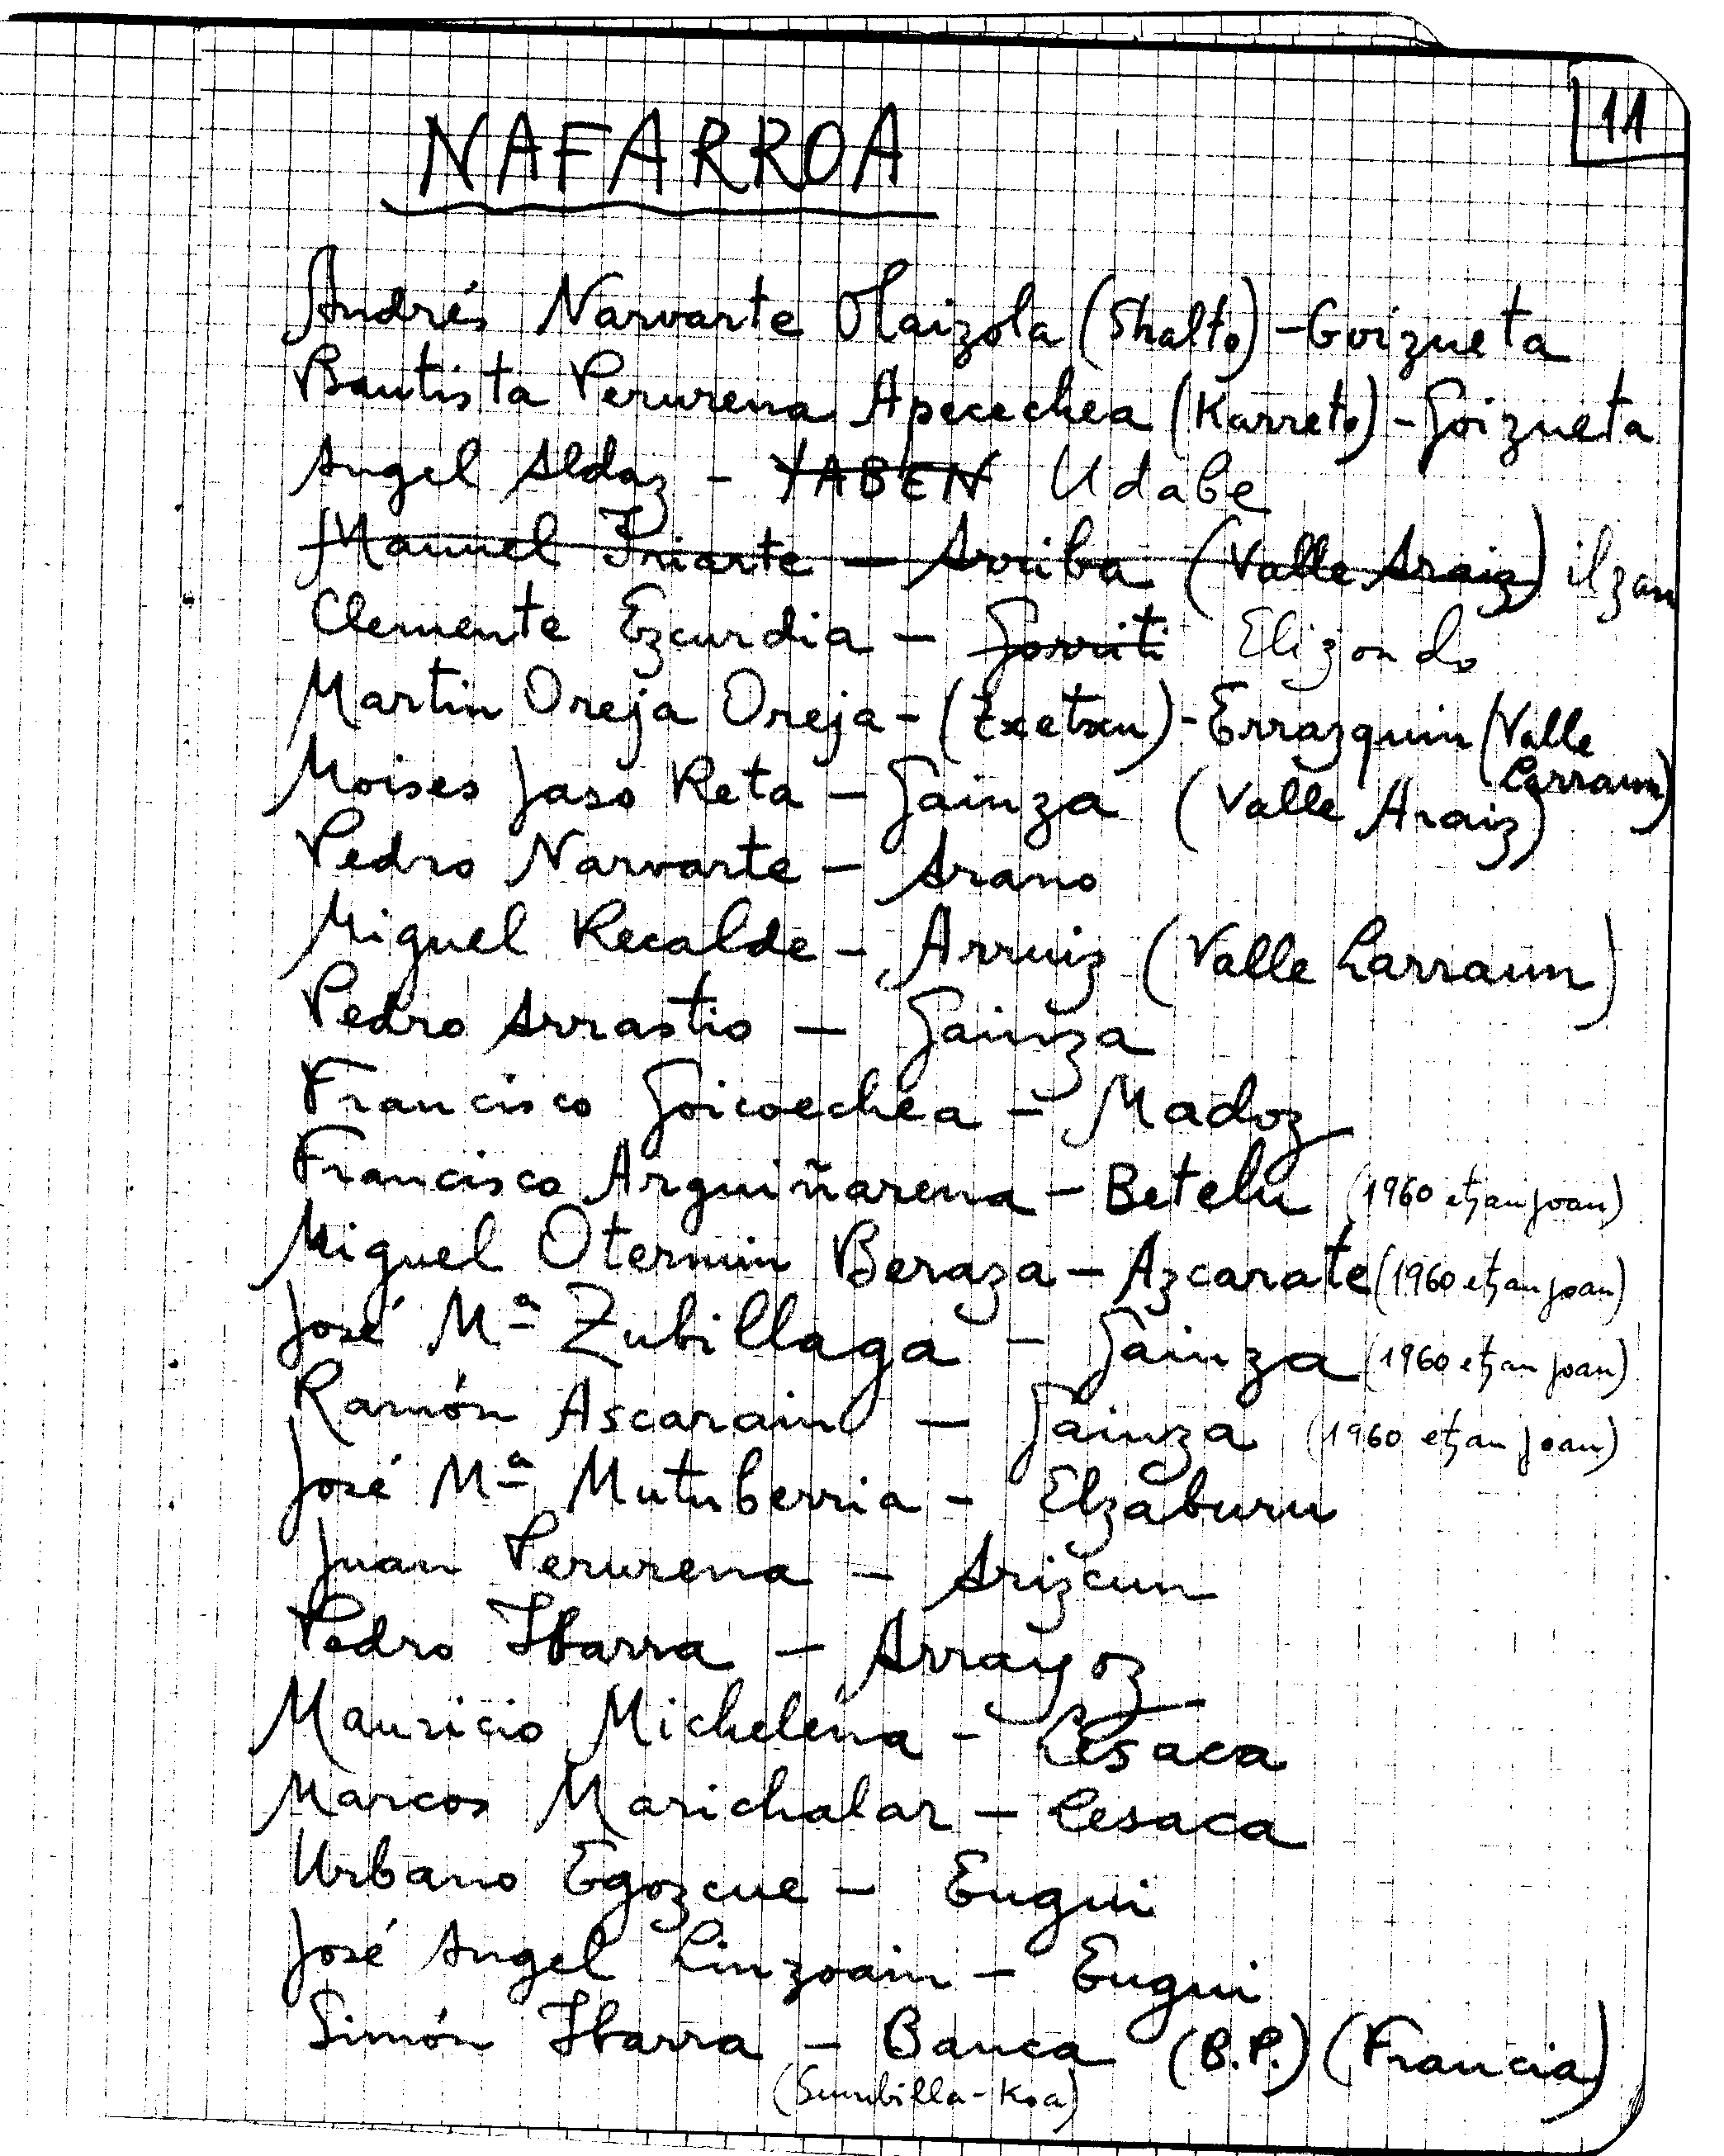 11
NAFARROA
Andrés Narvarte Olaizola (Shalto) - Goizueta
Bautista Perurena Apecechea (Karreto) - Goizueta
Angel Aldaz - YABEN Udabe
Manuel Iriarte - Arriba (Valle Araiz) ilzan
Clemente Ezcurdia - Gorriti Elizondo
Martin Oreja Oreja - (Exetxu) - Errazquin (Valle
Larraun)
Moises Jaso Reta - Gainza (Valle Araiz)
Pedro Narvarte - Arano
Miguel Recalde - Arruiz (Valle Larraun)
Pedro Arrastio - Gainza
Francisco Goicoechea - Madoz
Francisco Arguiñarena - Betelu (1960 etzan joan)
Miguel Otermin Beraza - Azcarate (1960 etzan joan)
José Mª Zubillaga - Gainza (1960 etzan joan)
Ramón Ascarain - Gainza (1960 etzan joan)
José Mª Mutuberria - Elzaburu
Juan Perurena - Arizcun
Pedro Ibarra - Arrayoz
Mauricio Michelena - Lesaca
Marcos Marichalar - Lesaca
Urbano Egozcue - Eugui
José Angel Linzoain - Eugui
Simón Ibarra - Banca (B.P.) (Francia)
(Sumbilla-Koa)